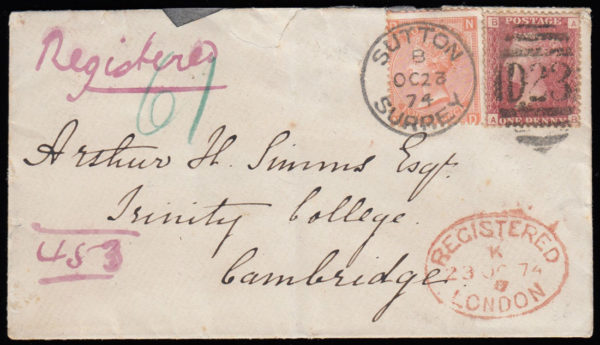 Registered
61
D N
D
SUTTON
B
OC 23
74
SURREY
B POSTAGE A
D23
A ONE PENNY B
Arthur H. Simms Esqr.
Trinity College.
Cambridge
453
REGISTERED
K
23 OC 74
B
LONDON